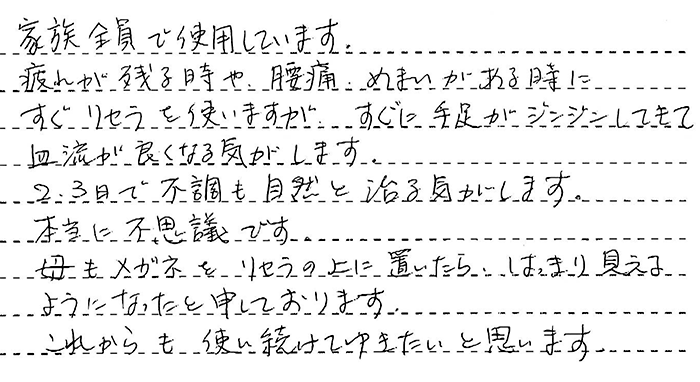 家族全員で使用しています。
疲れが残る時や、腰痛、めまいがある時に
すぐリセラを使いますが、すぐに手足がジンジンしてきて
血流が良くなる気がします。
2、3日で不調も自然と治る気がします。
本当に不思議です。
母もメガネをリセラの上に置いたら、はっきり見える
ようになったと申しております。
これからも使い続けてゆきたいと思います。